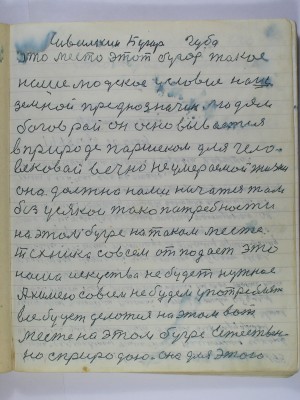 Чивилкин Бугор Губа
это место этот бугор такое
наше людское условье наше
земной предназначен людям
богов рай он основывается
в природе паршеком для чело-
вековай вечно неумераемой жизни
она должно нами начатся там
без усякой тако патребности
на этом бугре на таком месте.
техника совсем отподает это
наша искуства не будет нужнае
А химею совсем не будем употреблят
все будет делатся на этом вот
месте на этом бугре Естествен-
но с природаю. она для этого